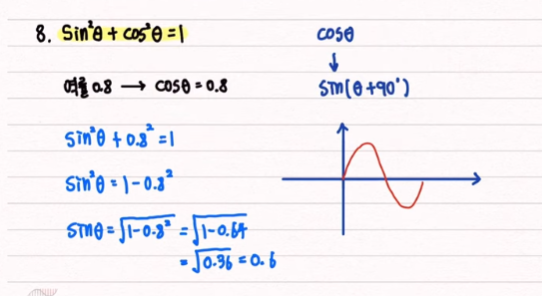 8. Sin²θ + cos²θ = 1
cosθ
↓
sin(θ+90°)
역률 0.8 → cosθ = 0.8
sin²θ + 0.8² = 1
sin²θ = 1 - 0.8²
sinθ = √(1-0.8²) = √(1-0.64)
= √0.36 = 0.6